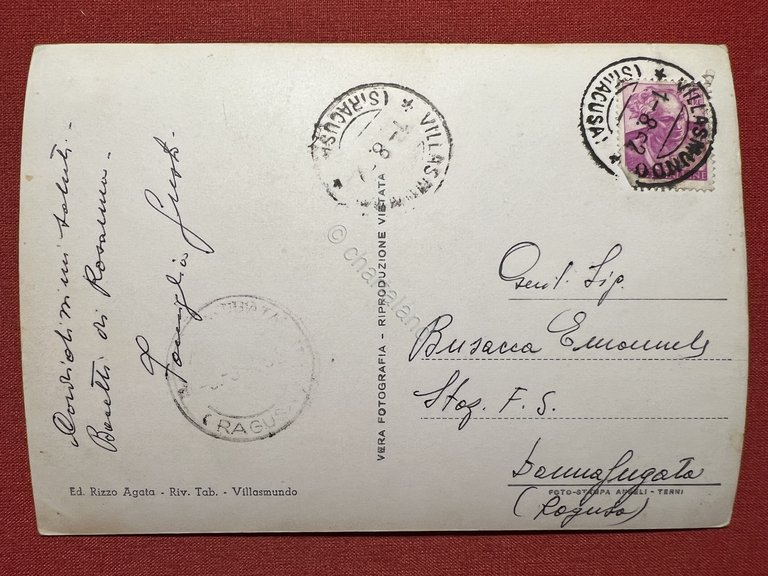 Cordialissimi saluti -
Baretti di Rosanna -
Famiglia
VILLASMUNDO
(SIRACUSA)
7-8
VILLASMUNDO
(SIRACUSA)
7-8-62
(RAGUSA)
VERA FOTOGRAFIA - RIPRODUZIONE VIETATA
© charalan
Gent. Sig.
Busacca Emanuele
Staz. F. S.
Donnafugata
(Ragusa)
Ed. Rizzo Agata - Riv. Tab. - Villasmundo
FOTO-STAMPA ANGELI - TERNI